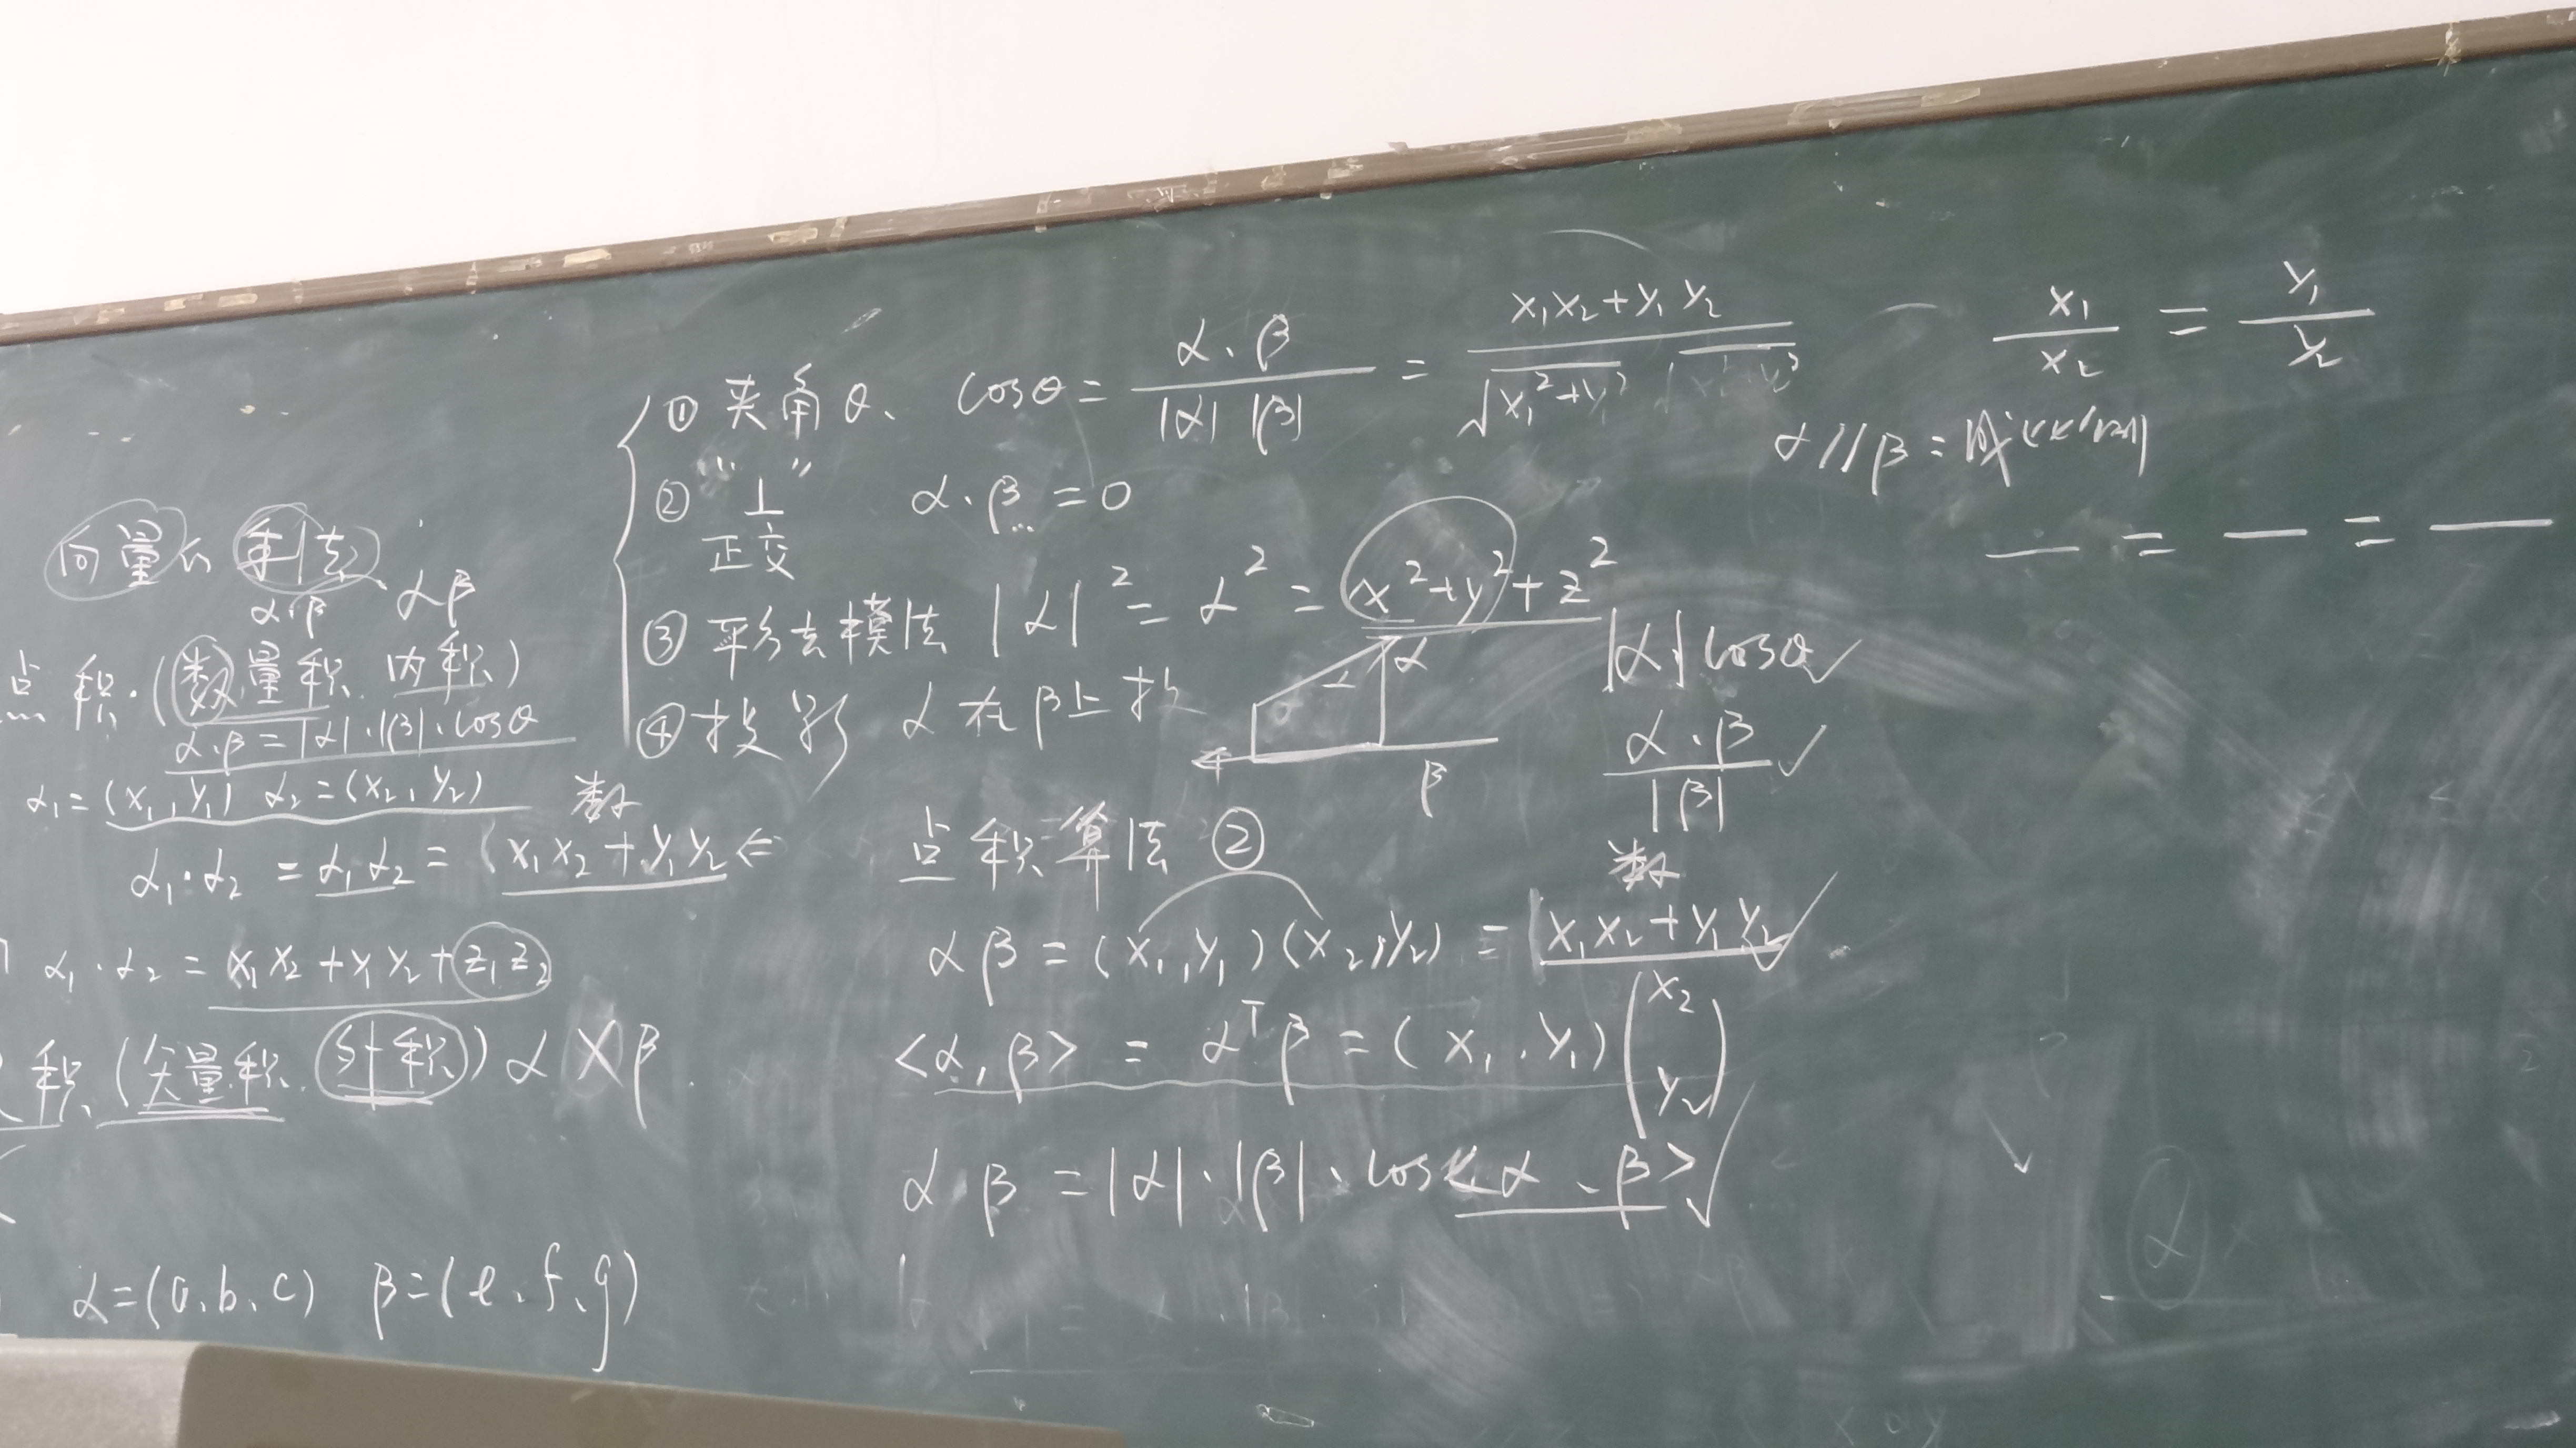 向量の乘法
α·β αβ
点积·(数量积 内积)
α·β=|α|·|β|·cosθ
α₁=(x₁,y₁) α₂=(x₂,y₂) 数
α₁·α₂ = α₁α₂ = x₁x₂+y₁y₂ ⇐
α₁·α₂ = x₁x₂+y₁y₂+z₁z₂
积(矢量积. 外积) α×β
α=(a,b,c) β=(e,f,g)
① 夹角θ、 cosθ = α·β / |α| |β| = x₁x₂+y₁y₂ / √x₁²+y₁² √x₂²+y₂²
② "⊥" α·β=0
正交
③ 平方去模法 |α|²=α²=x²+y²+z²
④ 投影 α在β上投
α
β
|α|cosθ ✓
α·β / |β| ✓
数
点积算法 ②
αβ=(x₁,y₁)(x₂,y₂) = x₁x₂+y₁y₂ ✓
<α,β> = αᵀβ=(x₁,y₁)(x₂ y₂)
α·β=|α|·|β|·cos<α、β> ✓
x₁/x₂ = y₁/y₂
α//β:
— = — = —